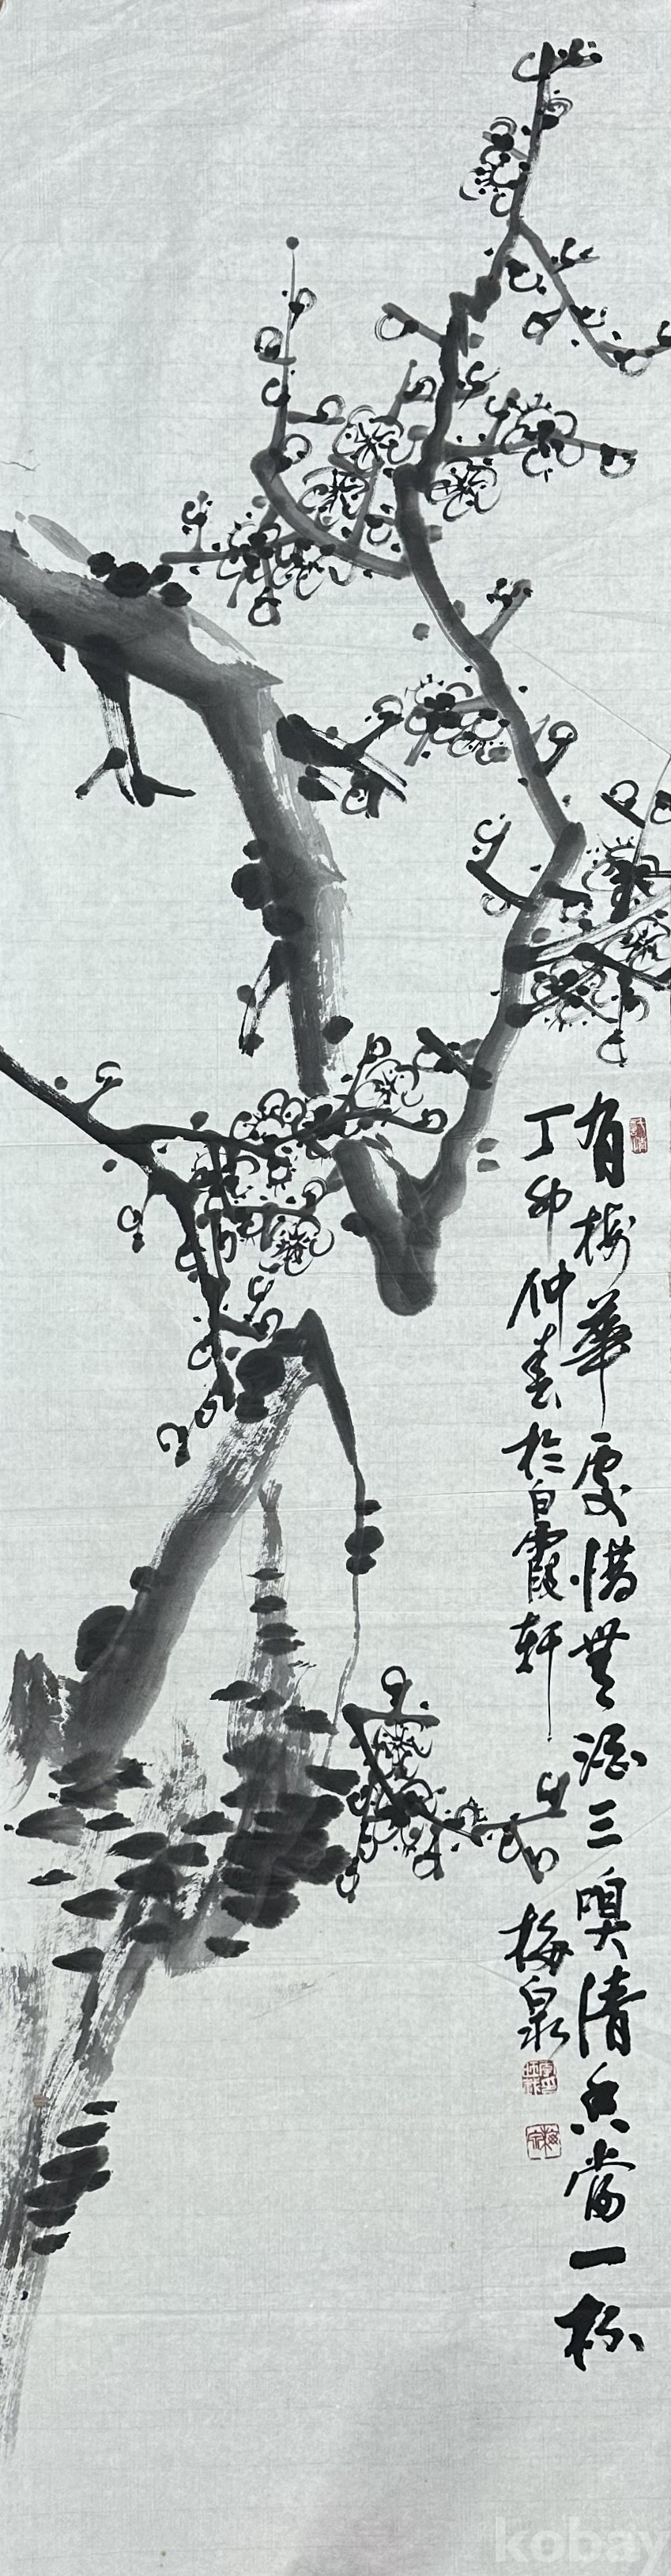 有梅華處惜無酒三嗅清香當一杯
丁卯仲春於白霞軒
梅泉
kobay